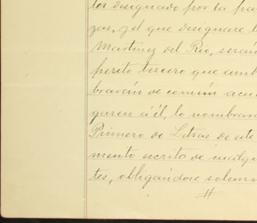 tor designado por la par
zas, y el que designare l
Martinez del Rio, serán
perito tercero que amb
brarán de comun acue
garen á él, lo nombrará
Primero de Letras de este
mento escrito de cualqui
tes, obligándose solemn